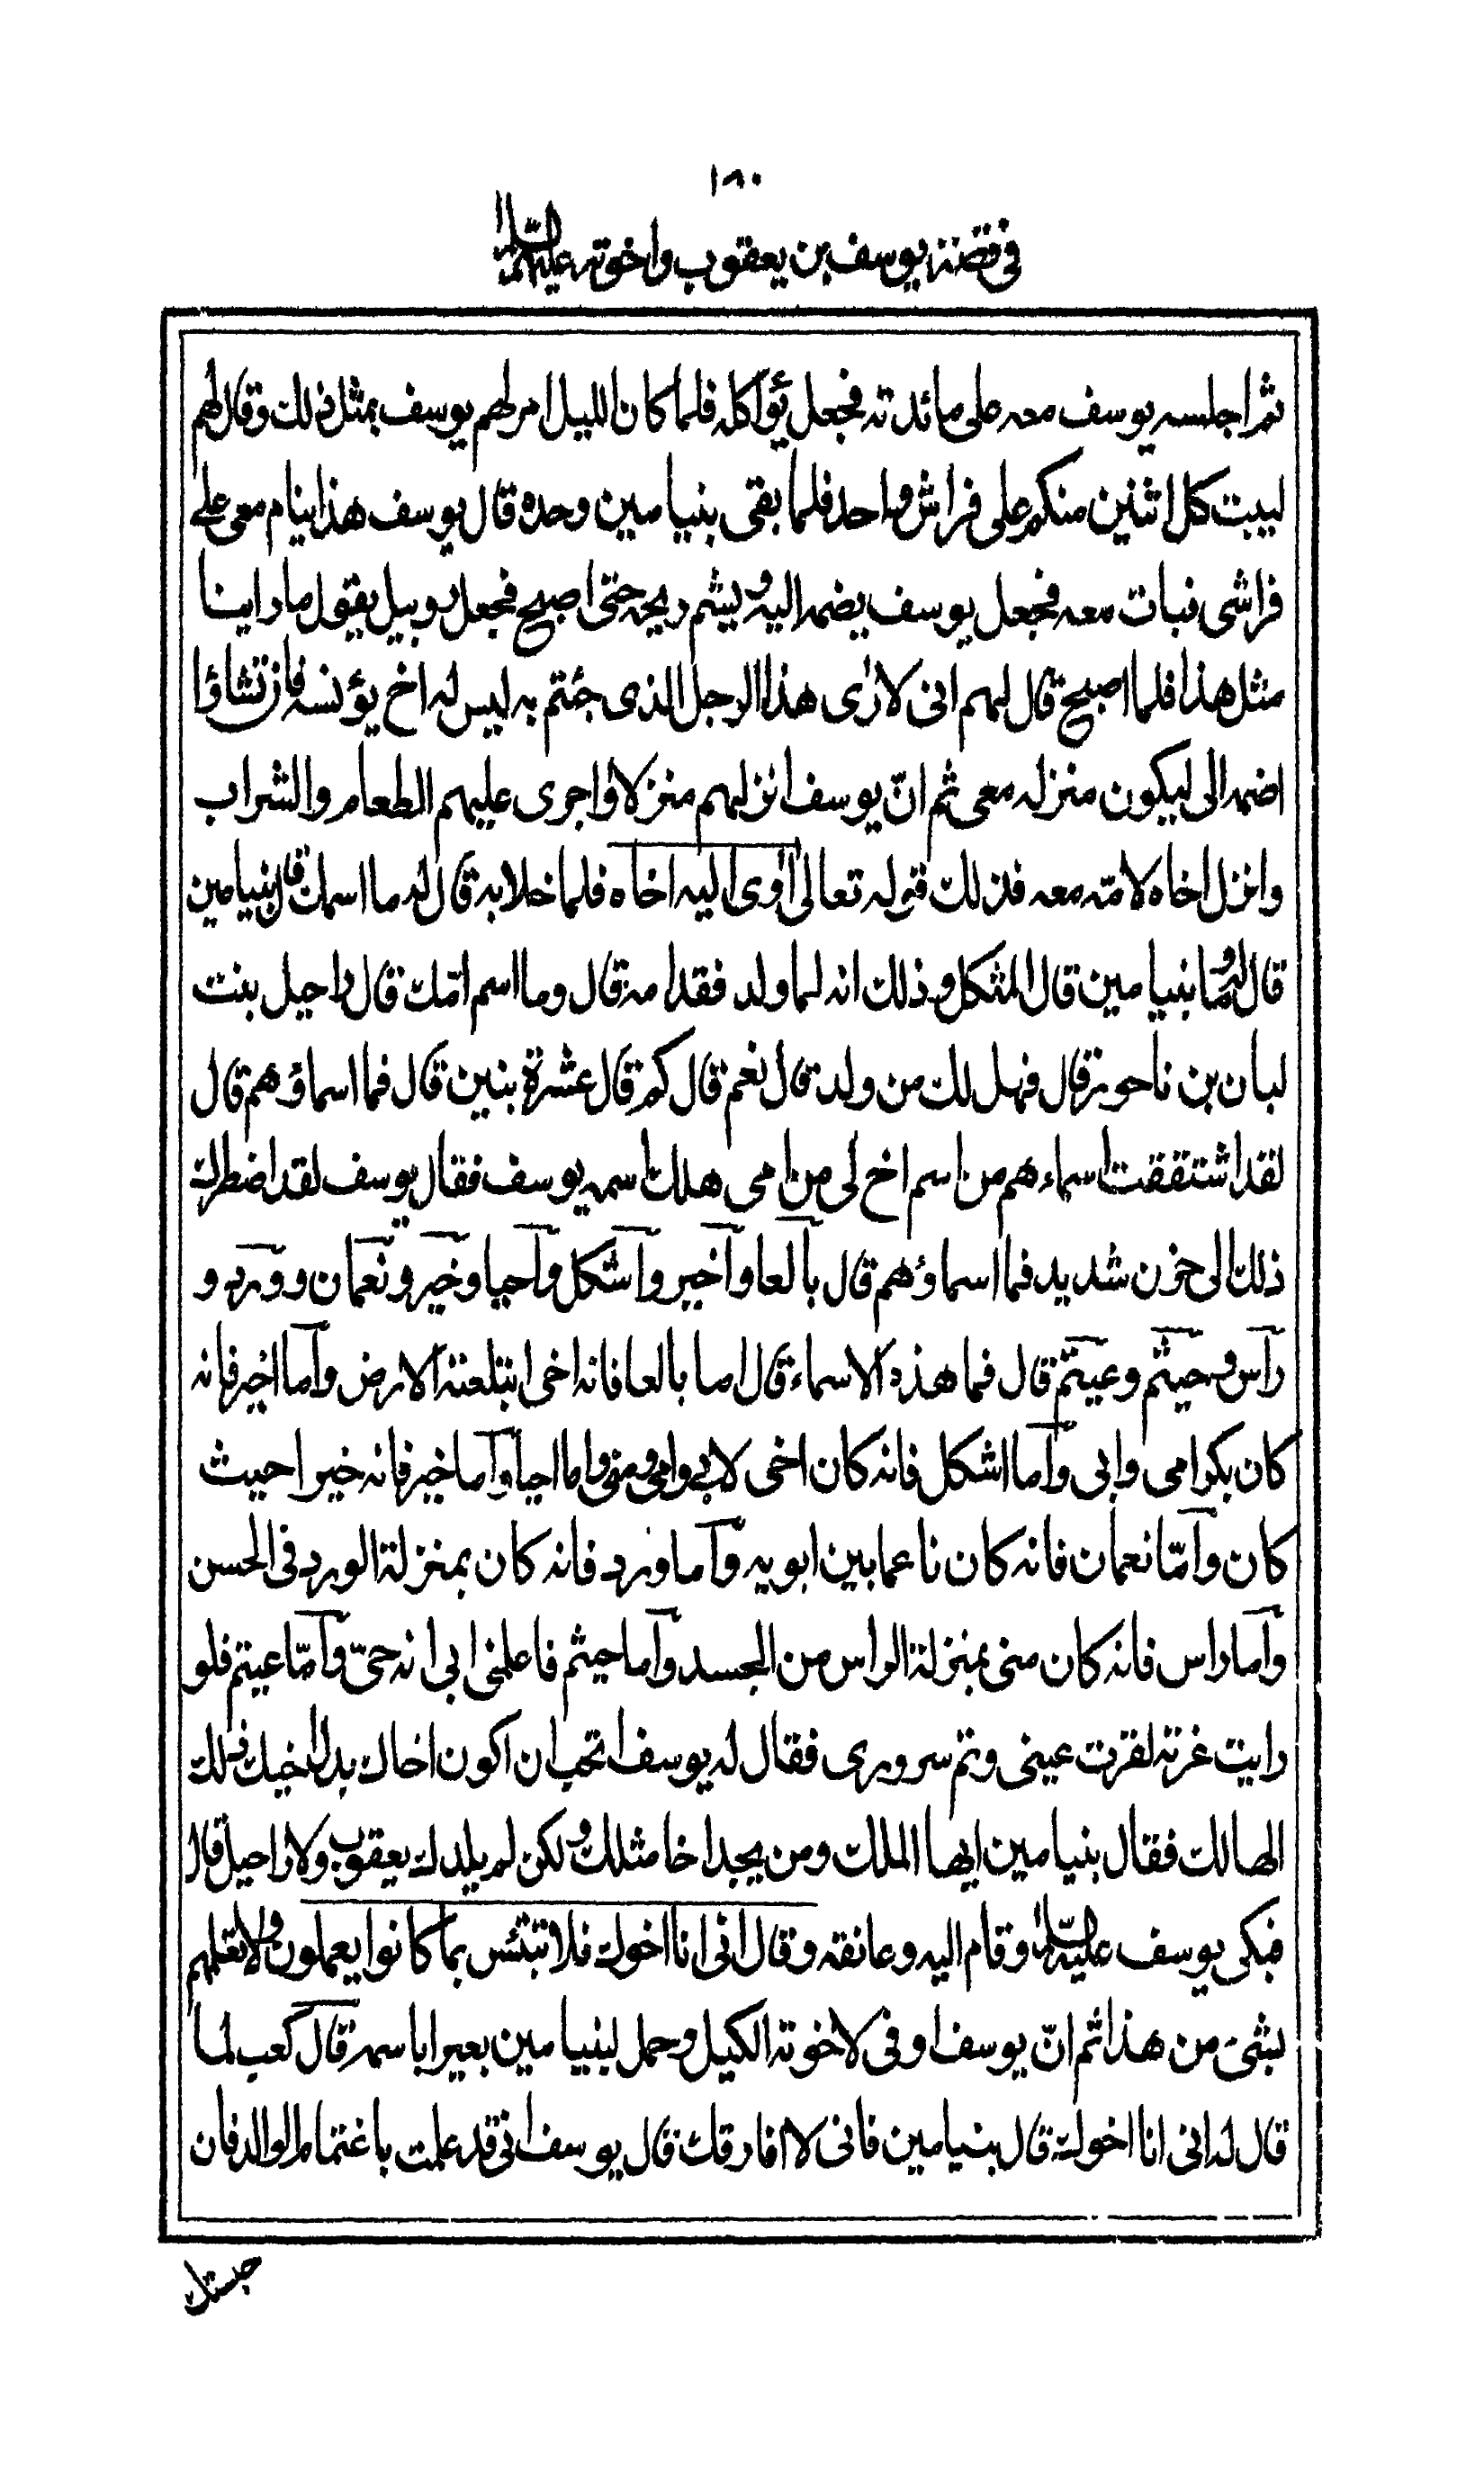 ١٨٠
في قصة يوسف بن يعقوب واخوته عليهم السلام
ثم اجلسه يوسف معه على مائدته فجعل يؤاكله فلما كان الليل امر لهم يوسف بمثل ذلك وقال لهم
ليبت كل اثنين منكم على فراش واحد فلما بقى بنيامين وحده قال يوسف هذا ينام معى على
فراشى فبات معه فجعل يوسف يضمه اليه ويشم ريحه حتى اصبح فجعل روبيل يقول ما راينا
مثل هذا فلما اصبح قال لهم انى لارى هذا الرجل الذى جئتم به ليس له اخ يؤنسه فان تشاؤا
اضمه الى ليكون منزله معى ثم انّ يوسف انزلهم منزلا واجرى عليهم الطعام والشراب
وانزل اخاه لامّه معه فذلك قوله تعالى اوى اليه اخاه فلما خلا به قال له ما اسمك قال بنيامين
قال له وما بنيامين قال المثكل وذلك انه لما ولد فقد امه قال وما اسم امّك قال راحيل بنت
لبان بن ناحور قال فهل لك من ولد قال نعم قال كم قال عشرة بنين قال فما اسماؤهم قال
لقد اشتققت اسماءهم من اسم اخ لى من امى هلك اسمه يوسف فقال يوسف لقد اضطرك
ذلك الى حزن شديد فما اسماؤهم قال بالعا واخير واشكل واحيا وخير ونعمان وورد و
راس وحيثم وعيتم قال فما هذه الاسماء قال اما بالعا فانه اخى ابتلعته الارض واما اخير فانه
كان بكر امى وابى واما اشكل فانه كان اخى لابى وامى ومنى واما احيا واما خير فانه خير احيث
كان وامّا نعمان فانه كان ناعما بين ابويه واما ورد فانه كان بمنزلة الورد فى الحسن
واما راس فانه كان منى بمنزلة الراس من الجسد واما حيثم فاعلمنى ابى انه حىّ وامّا عيتم فلو
رايت غرته لقرت عينى وتم سرورى فقال له يوسف اتحب ان اكون اخاك بدل اخيك ذلك
الهالك فقال بنيامين ايها الملك ومن يجد اخا مثلك ولكن لم يلدك يعقوب ولا راحيل قال
فبكى يوسف عليه السلام وقام اليه وعانقه وقال انى انا اخوك فلا تبتئس بما كانوا يعملون ولا تعلمهم
بشئ من هذا ثم انّ يوسف اوفى لاخوته الكيل وحمل لبنيامين بعيرا باسمه قال كعب لما
قال له انى انا اخوك قال بنيامين فانى لا افارقك قال يوسف انى قد علمت باغتمام الوالد فان
حبستك